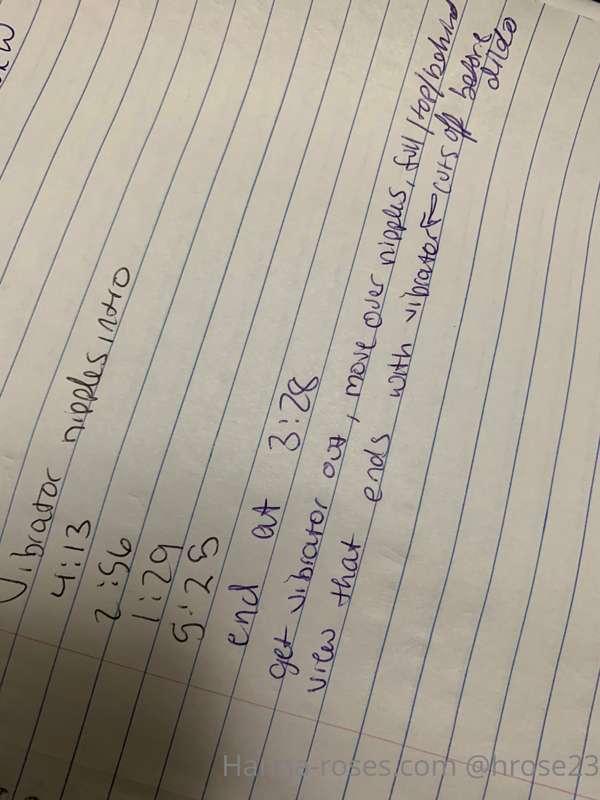 Vibrator nipples intro
4:13
2:56
1:29
5:25
end at 3:28
get vibrator out, move over nipples, full/top/behind
view that ends with vibrator ← cuts off before
dildo
Hanna-roses.com @hrose23